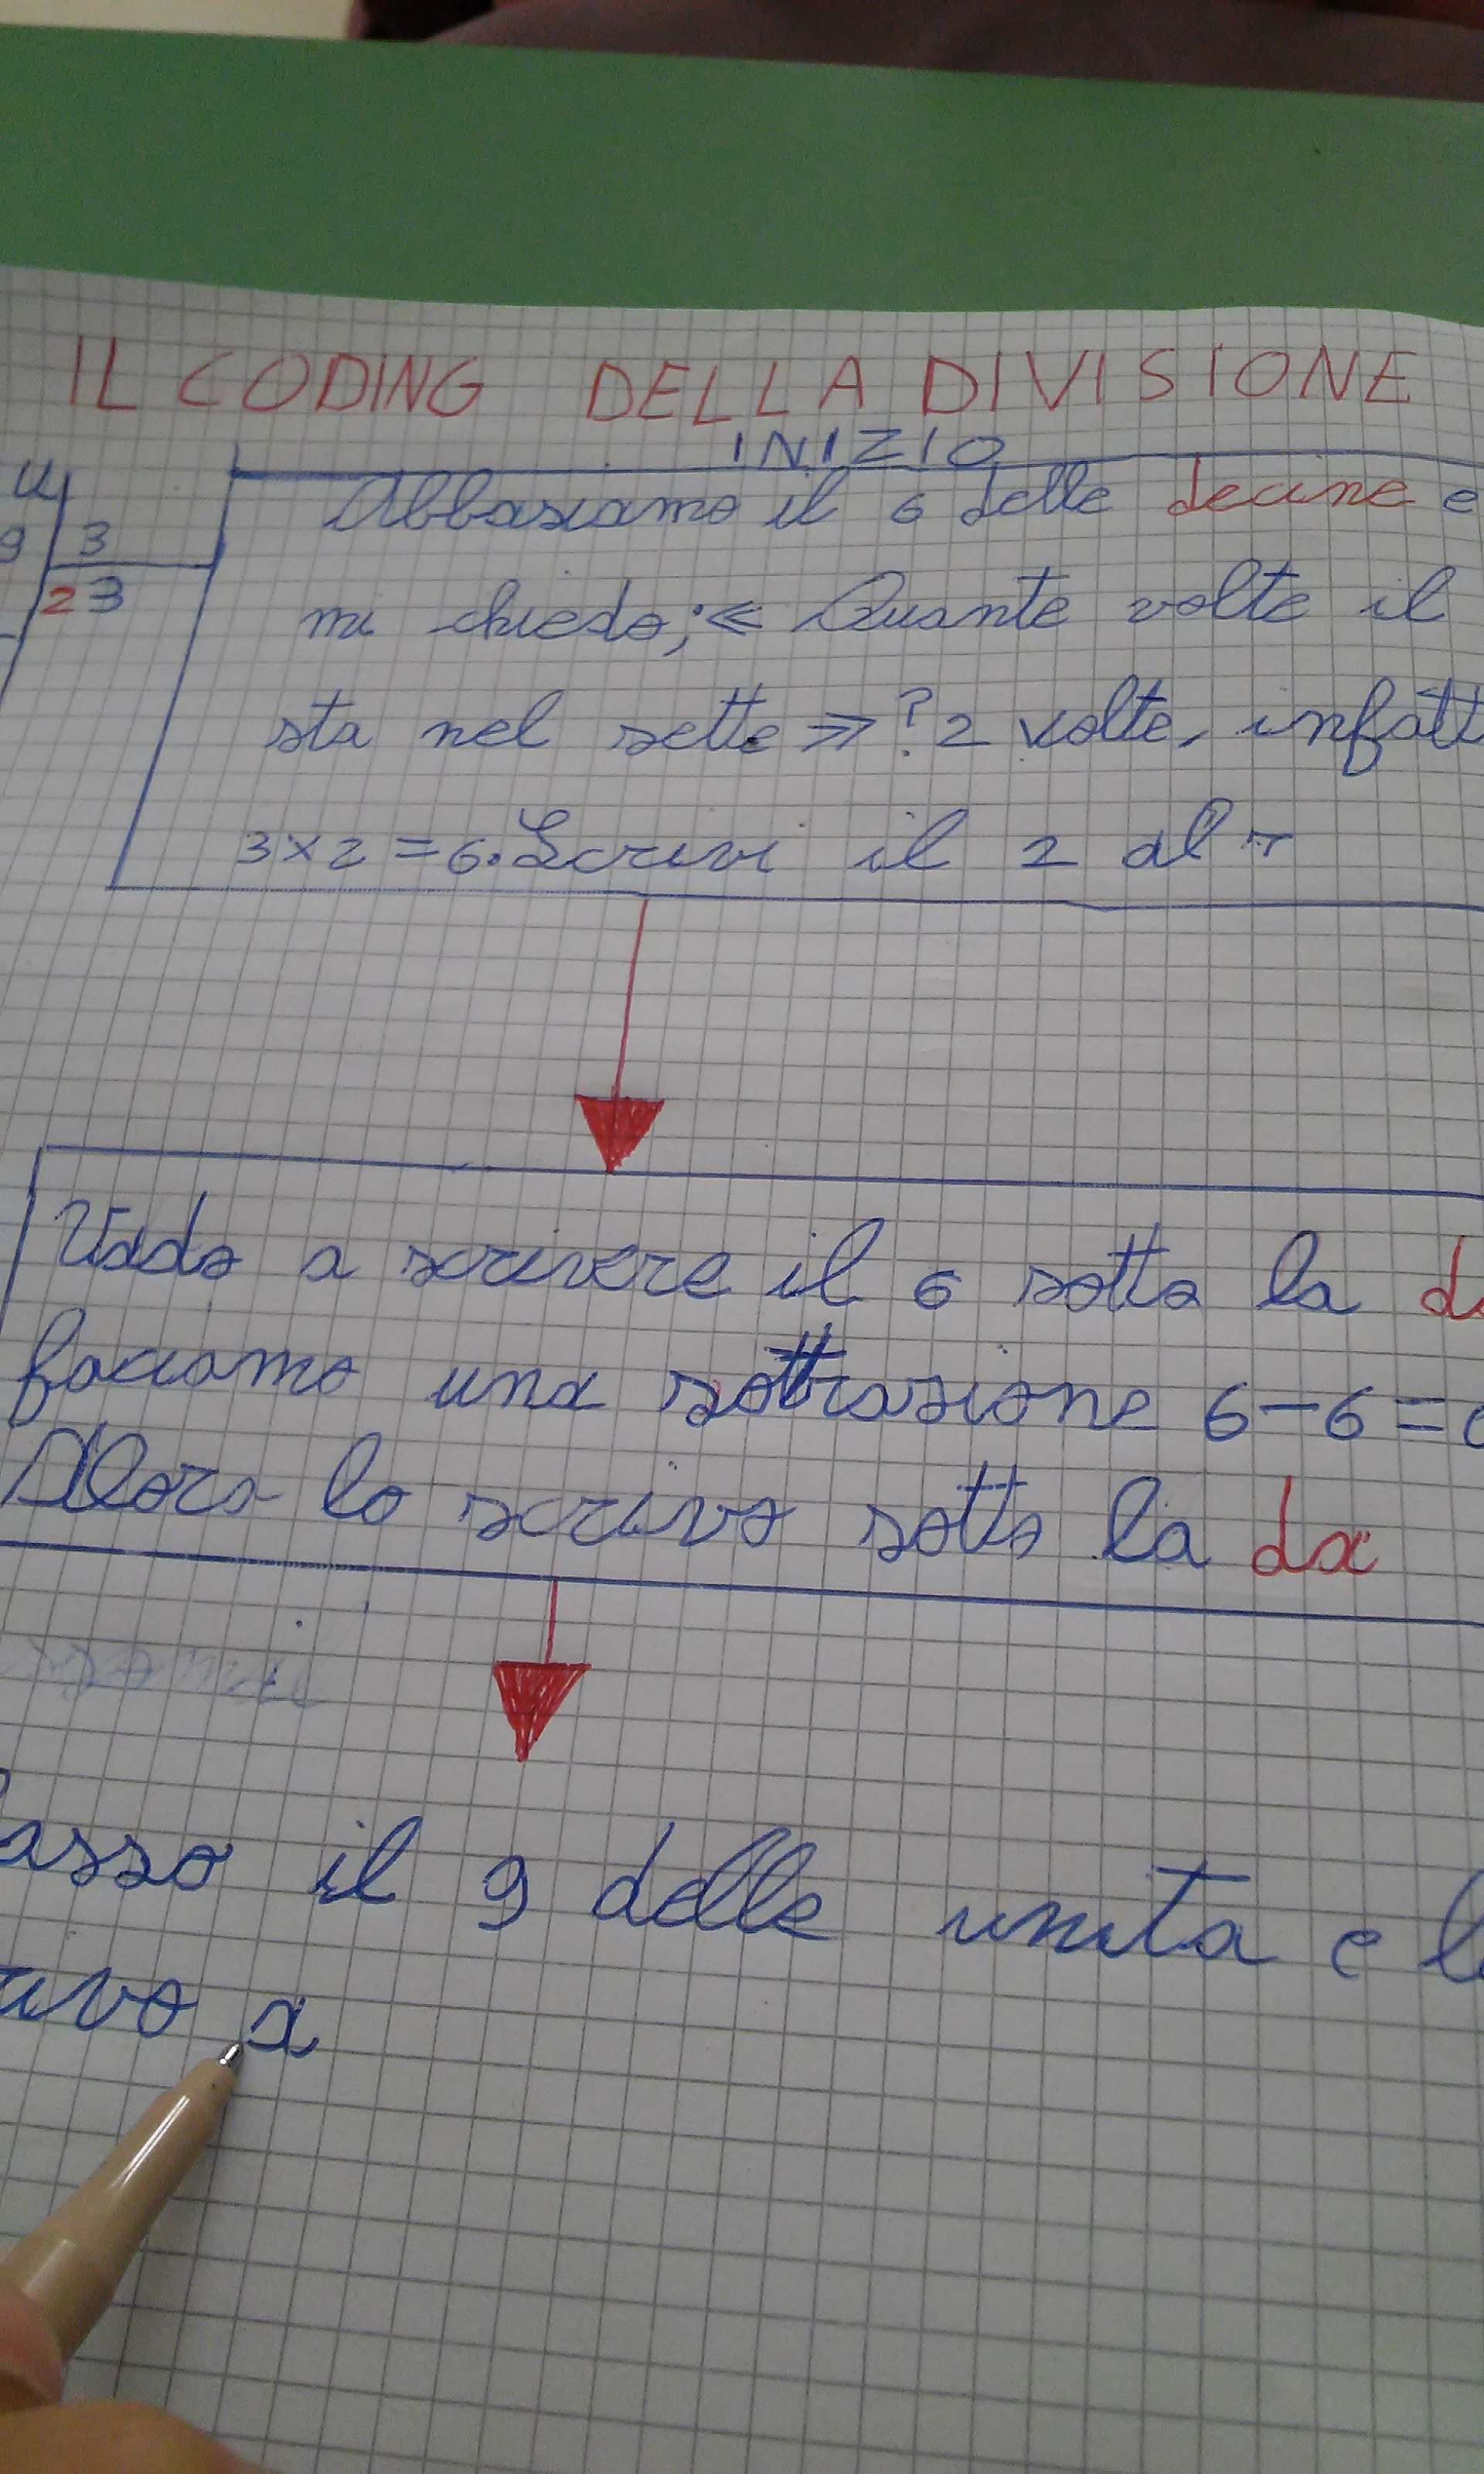 IL CODING DELLA DIVISIONE
INIZIO
u
9 3
23
Abbassiamo il 6 delle decine e
mi chiedo; « Quante volte il
sta nel sette » ? 2 volte, infatt
3x2=6. Scrivi il 2 al r
Vado a scrivere il 6 sotto la da
facciamo una sottrasione 6-6=0
Allora lo scrivo sotto la da
asso il 9 delle unita e l
ivo a